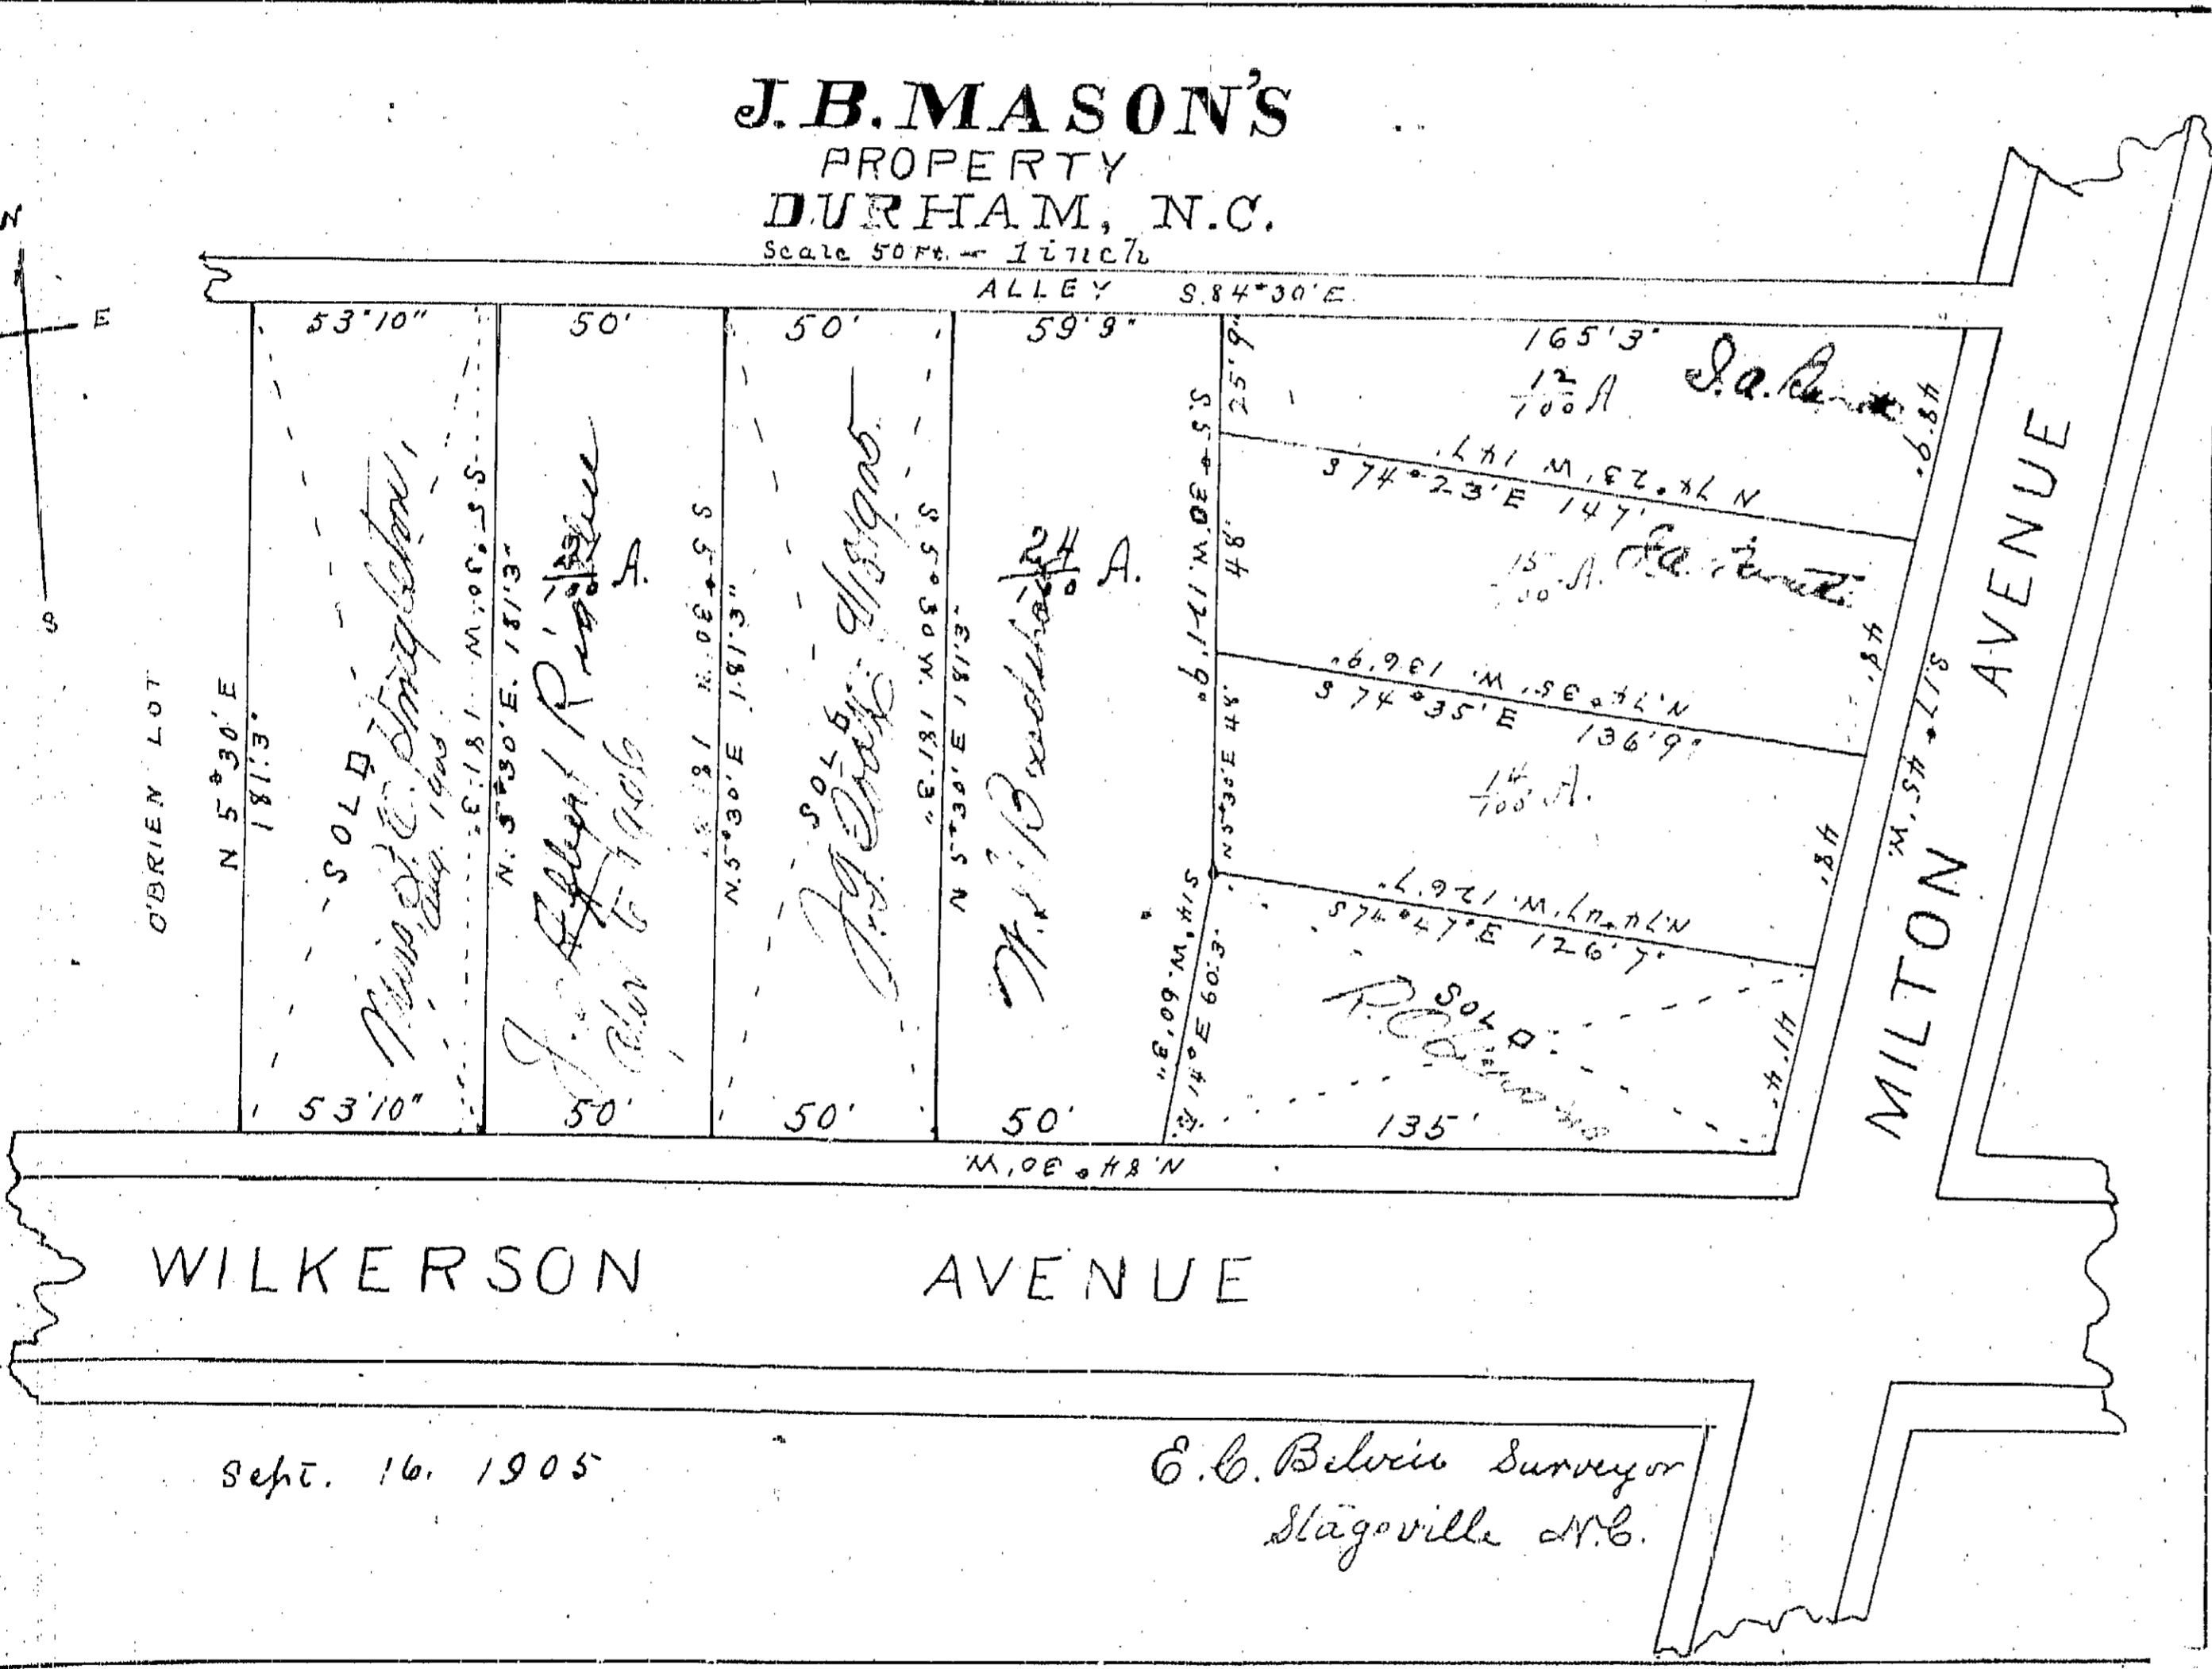 J.B. MASON'S
PROPERTY
DURHAM, N.C.
Scale 50 Ft. - 1 inch
N
E
S
ALLEY S.84°30'E.
53'10"
50'
50'
59'9"
165'3"
O'BRIEN LOT
N 5°30'E
181'3"
SOLD
Miss
Aug. 190
S 5°30'W 181'3"
N. 5°30'E. 181'3"
Albert
A.
1906
S 5°30' 181'3"
N.5°30'E 181'3"
SOLD
J.
S 5°30 W. 181'3"
N 5°30'E 181'3"
24/100 A.
W.
25'6"
S.5°30 W. 171'9"
48'
N 5°30'E 48'
S 14° W. 60'3"
N 14° E 60'3"
12/100 A
48'9"
N 74°23'W 147'
S 74°23'E 147'
15/100 A.
48'
N.74°35'W. 136'9"
S 74°35'E 136'9"
14/100 A.
48'
N.74°47'W. 126'7"
S 74°47'E 126'7"
SOLD
R.C.
41'4"
S.17°45'W.
MILTON AVENUE
53'10"
50'
50'
50'
135'
N.84°30'W.
WILKERSON AVENUE
Sept. 16. 1905
E.C. Belvin Surveyor
Stagville N.C.